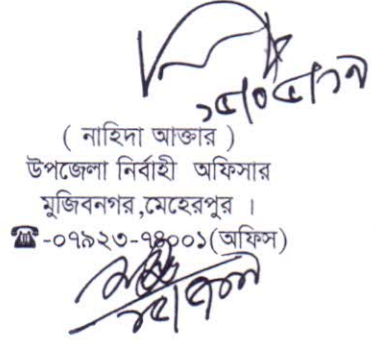 ( নাহিদা আক্তার )
উপজেলা নির্বাহী অফিসার
মুজিবনগর,মেহেরপুর ।
☎-০৭৯২৩-৭৪০০১(অফিস)